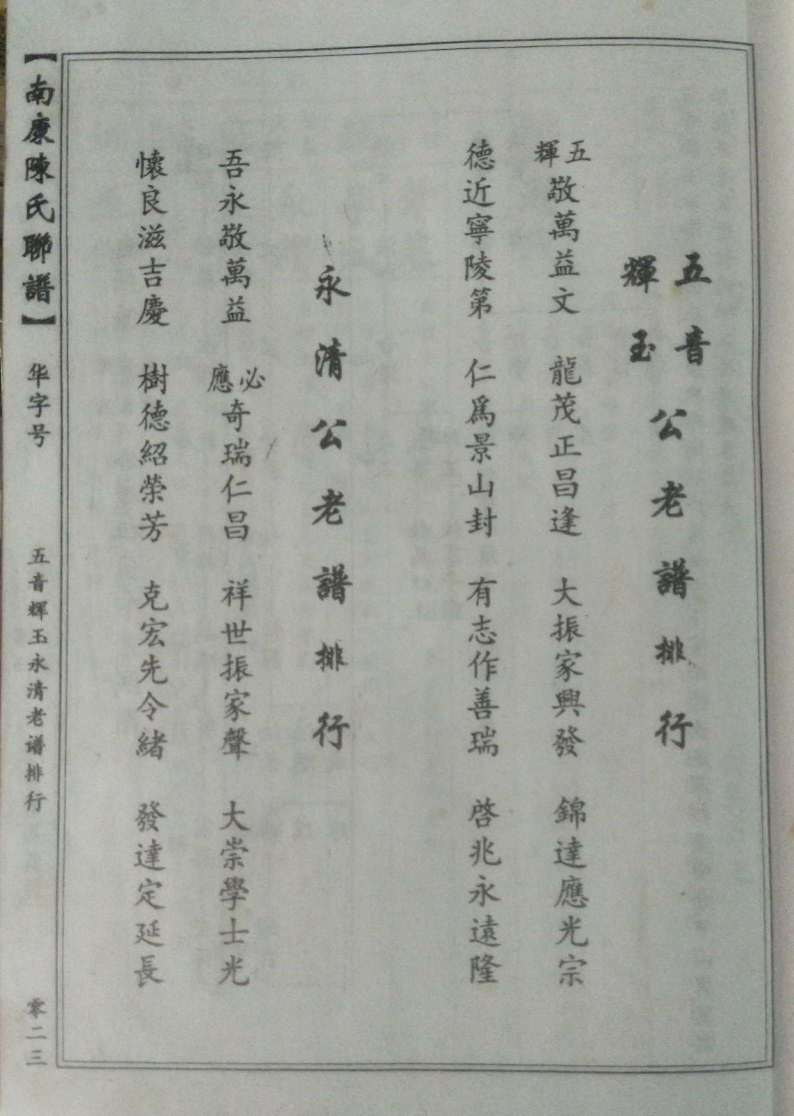 五音
輝玉
公老譜排行
五
輝
敬萬益文 龍茂正昌逢 大振家興發 錦達應光宗
德近寧陵第 仁爲景山封 有志作善瑞 啓兆永遠隆
永清公老譜排行
吾永敬萬益 必
應
奇瑞仁昌 祥世振家聲 大崇學士光
懷良滋吉慶 樹德紹榮芳 克宏先令緒 發達定延長
【南康陳氏聯譜】 华字号 五音輝玉永清老谱排行 零二三